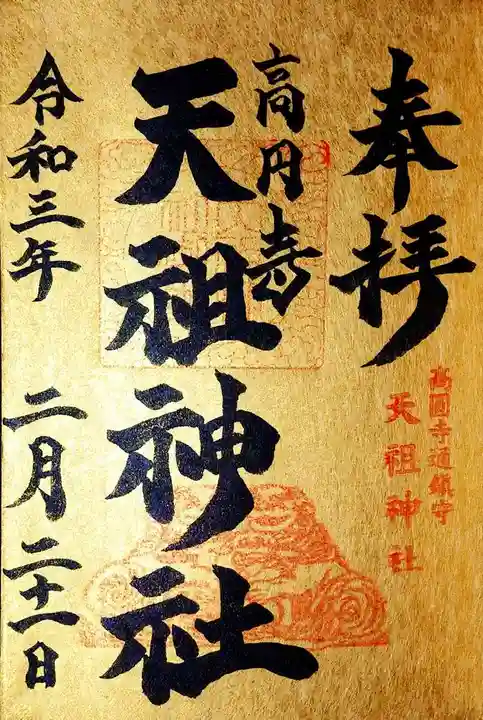 奉拝
高圓寺通鎮守
天祖神社
高円寺
天祖神社
令和三年
二月二十一日